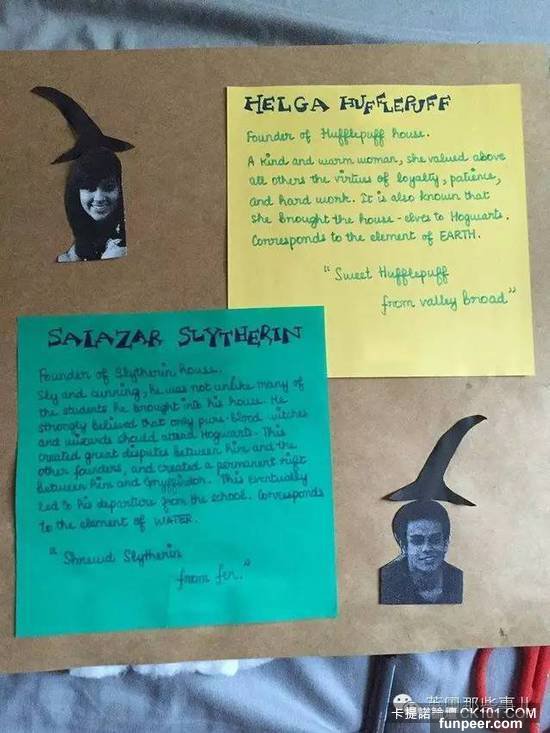 HELGA HUFFLEPUFF
Founder of Hufflepuff house.
A kind and warm woman, she valued above
all others the virtues of loyalty, patience,
and hard work. It is also known that
she brought the house-elves to Hogwarts.
Corresponds to the element of EARTH.
"Sweet Hufflepuff
from valley broad"
SALAZAR SLYTHERIN
Founder of Slytherin house.
Sly and cunning, he was not unlike many of
the students he brought into his house. He
strongly believed that only pure-blood witches
and wizards should attend Hogwarts. This
created great disputes between him and the
other founders, and created a permanent rift
between him and Gryffindor. This eventually
led to his departure from the school. Corresponds
to the element of WATER.
"Shrewd Slytherin
from fen."
英国那些事儿
卡提諾論壇 CK101.COM
funpeer.com